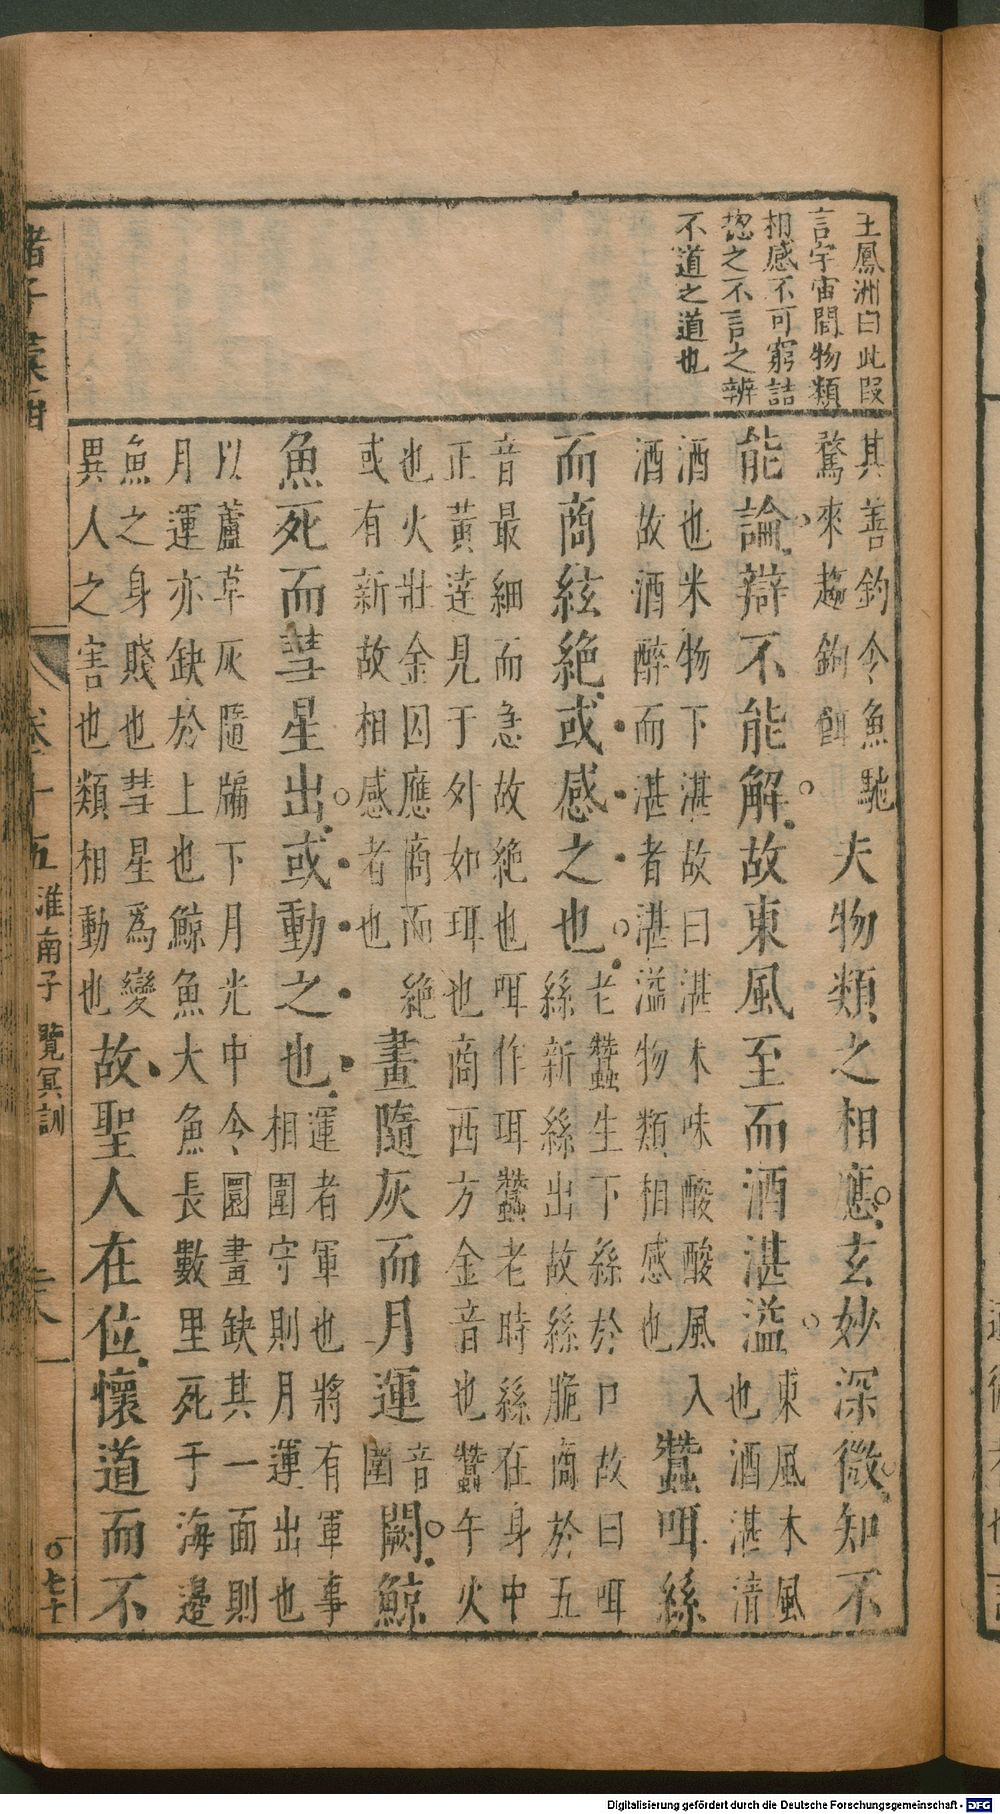 王鳳洲曰此段
言宇宙間物類
相感不可窮詰
揔之不言之辨
不道之道也
其善釣令魚馳
騖來趨鉤餌
夫物類之相應玄妙深微知不
能論辯不能解故東風至而酒湛溢
東風木風
也酒湛清
酒也米物下湛故曰湛木味酸酸風入
酒故酒醉而湛者湛溢物類相感也
蠶咡絲
而商絃絶或感之也
老蠶生下絲於口故曰咡
絲新絲出故絲脆商於五
音最細而急故絶也咡作珥蠶老時絲在身中
正黃達見于外如珥也商西方金音也蠶午火
也火壯金囚應商而絶
或有新故相感者也
畫隨灰而月運
音
圍
闕鯨
魚死而彗星出或動之也
運者軍也將有軍事
相圍守則月運出也
以蘆草灰隨牖下月光中令圜畫缺其一面則
月運亦缺於上也鯨魚大魚長數里死于海邊
魚之身賤也彗星為變
異人之害也類相動也
故聖人在位懷道而不
諸子彙函
卷十五
淮南子
覽冥訓
二八
〇七十
Digitalisierung gefördert durch die Deutsche Forschungsgemeinschaft - DFG